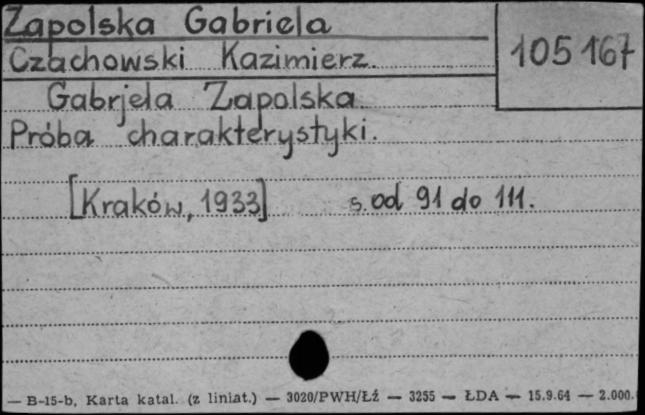 Zapolska Gabriela
105 167
Czachowski Kazimierz.
Gabrjela Zapolska.
Próba charakterystyki.
[Kraków, 1933] s. od 91 do 111.
— B-15-b, Karta katal. (z liniat.) — 3020/PWH/Łź — 3255 — ŁDA — 15.9.64 — 2.000.